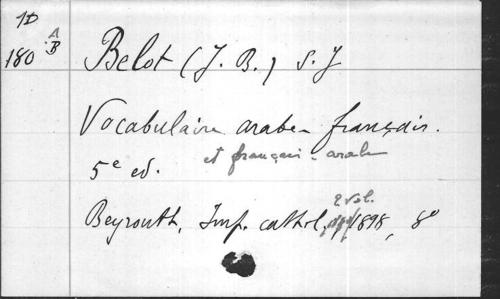 1D
180 A
B
Belot (J. B.) S. J
Vocabulaire arabe-français.
et français-arabe
5e ed.
2 vol.
Beyrouth, Imp. cathol., 1898, 8°